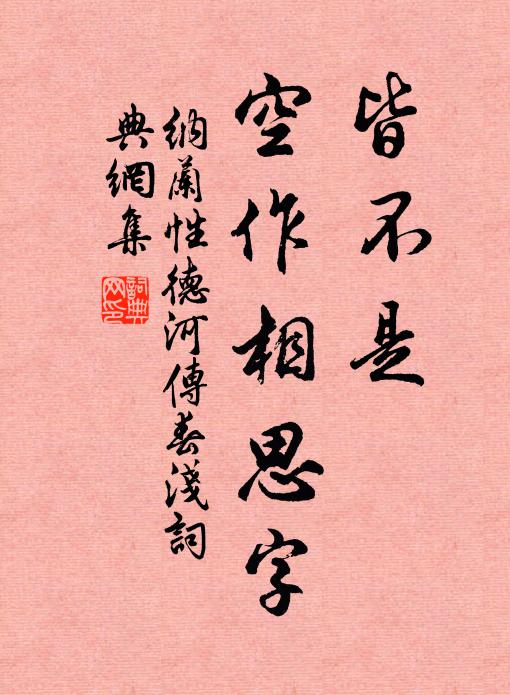 皆不是
空作相思字
納蘭性德河傳春淺詞
典網集
詞典
网印